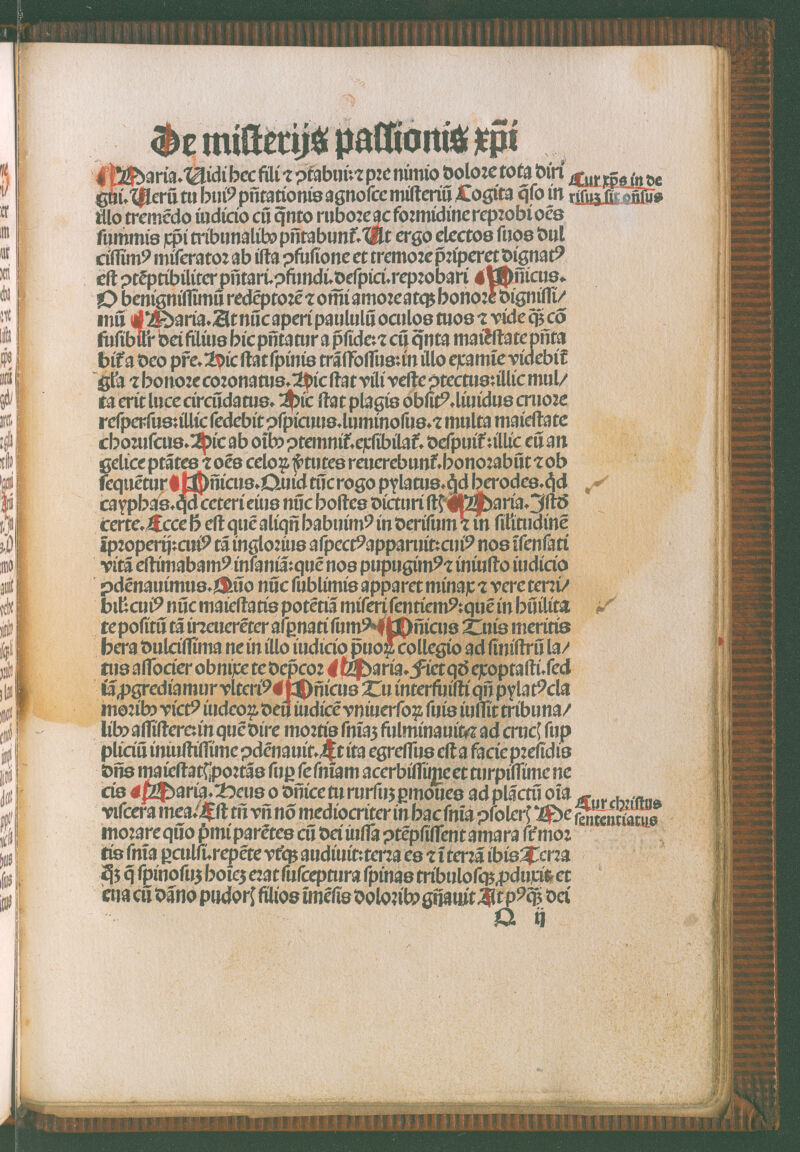 De misterijs passionis xp̄i
Maria. Uidi hec fili ⁊ ꝯtabui: ⁊ pre nimio dolore tota diri
gui. Uerū tu huiꝰ pn̄tationis agnosce misteriū Cogita q̄so in
illo tremēdo iudicio cū q̄nto rubore ac formidine reprobi oēs
summis xp̄i tribunalibꝰ pn̄tabunt̄. Ut ergo electos suos dul
cissimꝰ miserator ab ista ꝯfusione et tremore p̄riperet dignatꝰ
est ꝯtēptibiliter pn̄tari. ꝯfundi. despici. reprobari Dn̄icus.
O benignissimū redēptorē ⁊ om̄i amore atqꝫ honore dignissi/
mū Maria. At nūc aperi paululū oculos tuos ⁊ vide qꝫ cō
fusibilr̄ dei filius hic pn̄tatur a p̄side: ⁊ cū q̄nta maiestate pn̄ta
bit̄ a deo pr̄e. Hic stat spinis trāsfossus: in illo examīe videbit̄
gl̄a ⁊ honore coronatus. Hic stat vili veste ꝯtectus: illic mul/
ta erit luce circūdatus. Hic stat plagis obsitꝰ. liuidus cruore
respersus: illic sedebit ꝯspicuus. luminosus. ⁊ multa maiestate
choruscus. Hic ab oībꝰ ꝯtemnit̄. exsibilat̄. despuit̄: illic eū an
gelice ptātes ⁊ oēs celoꝝ v̓tutes reuerebunt̄. honorabūt ⁊ ob
sequētur Dn̄icus. Quid tūc rogo pylatus. qd̄ herodes. qd̄
cayphas. qd̄ ceteri eius nūc hostes dicturi st̄ Maria. Istd̄
certe. Ecce h̄ est quē aliqn̄ habuimꝰ in derisum ⁊ in sil̄itudinē
īproperij: cuiꝰ tā inglorius aspectꝰ apparuit: cuiꝰ nos īsensati
vitā estimabamꝰ insaniā: quē nos pupugimꝰ ⁊ iniusto iudicio
ꝯdēnauimus. Quō nūc sublimis apparet minax ⁊ vere terri/
bil̄: cuiꝰ nūc maiestatis potētiā miseri sentiemꝰ: quē in hūilita
te positū tā irreuerēter aspnati sumꝰ Dn̄icus Tuis meritis
hera dulcissima ne in illo iudicio p̄uoꝝ collegio ad sinistrū la/
tus associer obnixe te dep̄cor Maria. Fiet qd̄ exoptasti. sed
iā ꝓgrediamur vlteriꝰ Dn̄icus Tu interfuisti qn̄ pylatꝰ cla
moribꝰ victꝰ iudeoꝝ deū iudicē vniuersoꝝ suis iussit tribuna/
libꝰ assistere: in quē dire mortis sn̄iaꝫ fulminauit ⁊ ad cruc̄ sup
pliciū iniustissime ꝯdēnauit. Et ita egressus est a facie presidis
dn̄s maiestat̄ portās suꝑ se sn̄iam acerbissime et turpissime ne
cis Maria. Heus o dn̄ice tu rursuꝫ ꝑmoues ad plāctū oīa
viscera mea. Est tn̄ vn̄ nō mediocriter in hac sn̄ia ꝯsoler̄ Me
morare quō p̄mi parētes cū dei iussa ꝯtēpsissent amara st̄ mor
tis sn̄ia ꝑculsi. repēte vtqꝫ audiuit: terra es ⁊ ī terrā ibis Terra
qꝫ q̄ spinosuꝫ hoīeꝫ erat susceptura spinas tribulosqꝫ ꝓduxit et
eua cū dāno pudor̄ filios īmēsis doloribꝰ gn̄auit At pꝰqꝫ dei
Q ij
Cur xp̄s in de
risuꝫ sit on̄sus
Cur christus
sententiatus